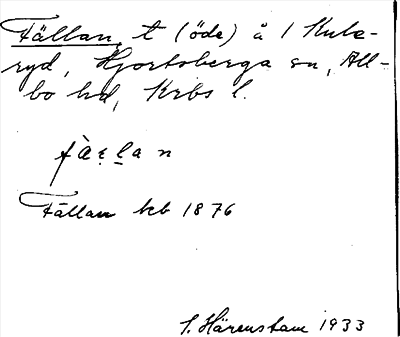 Fällan, t (öde) å 1 Kula-
ryd, Hjortsberga sn, All-
bo hd, Krbs l.
Fällan kcb 1876
S. Härenstam 1933